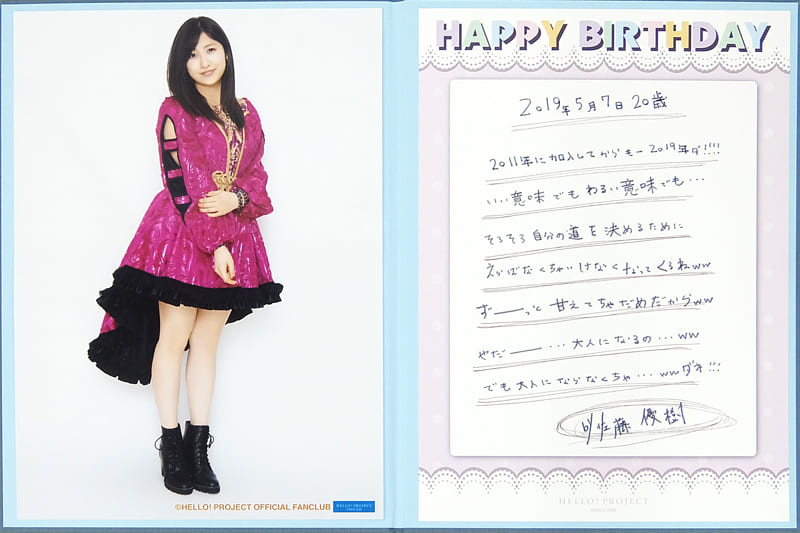 ©HELLO! PROJECT OFFICIAL FANCLUB
HELLO! PROJECT
HAPPY BIRTHDAY
2019年5月7日 20歳
2011年に加入してからもー2019年ダ!!!!
いい意味でもわるい意味でも...
そろそろ自分の道を決めるために
えらばなくちゃいけなくなってくるねww
ずーっと甘えてちゃだめだからww
やだー...大人になるの...ww
でも大人にならなくちゃ...wwダネ!!!
by佐藤優樹
HELLO! PROJECT